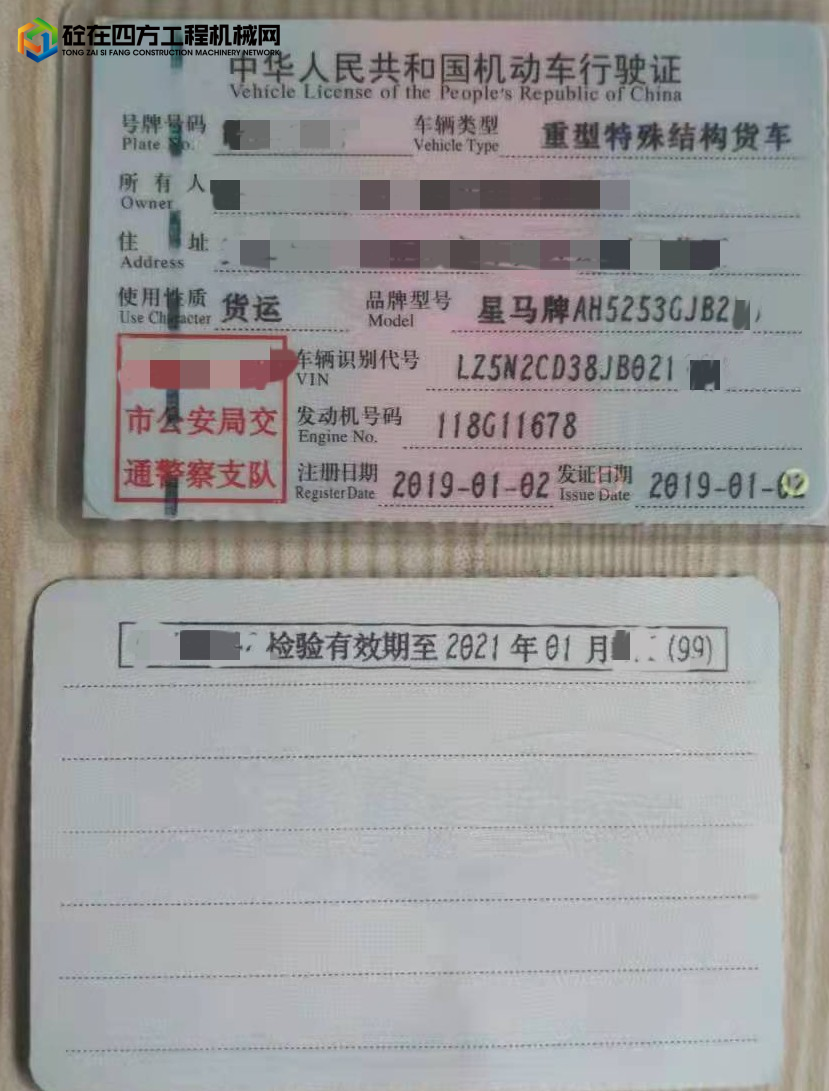 砼在四方工程机械网
TONG ZAI SI FANG CONSTRUCTION MACHINERY NETWORK
中华人民共和国机动车行驶证
Vehicle License of the People's Republic of China
号牌号码 车辆类型 重型特殊结构货车
Plate No. Vehicle Type
所有人
Owner
住址
Address
使用性质 货运 品牌型号 星马牌AH5253GJB2
Use Character Model
车辆识别代号 LZ5N2CD38JB021
VIN
市公安局交 发动机号码 118G11678
Engine No.
通警察支队 注册日期 2019-01-02 发证日期 2019-01-02
Register Date Issue Date
检验有效期至2021年01月 (99)